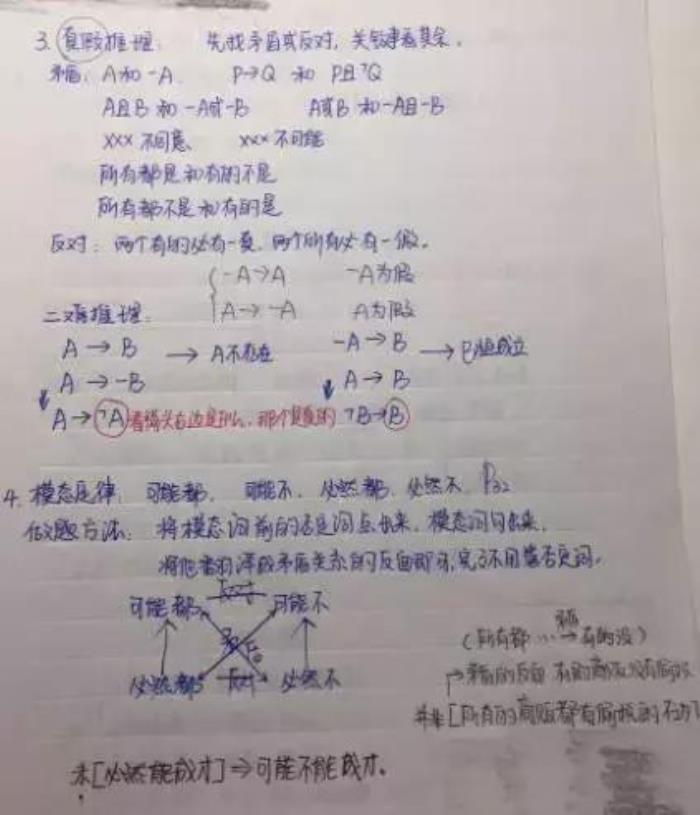 3. 真假推理: 先找矛盾或反对, 关键看其余.
矛盾: A和-A. P→Q 和 P且¬Q
A且B 和 -A或-B A或B 和 -A且-B
xxx 不同意、 xxx 不可能
所有都是和有的不是
所有都不是和有的是
反对: 两个有的必有一真, 两个所有必有一假.
-A→A -A为假
二难推理: A→-A A为假
A→B → A不存在 -A→B → B恒成立
A→-B A→B
A→¬A 看箭头右边是什么, 那个是真的 ¬B→B
4. 模态定律: 可能都, 可能不, 必然都, 必然不. P32
做题方法: 将模态词前的否定词点出来, 模态词句出来,
将他翻译成矛盾关系的反面即可, 完了不用管否定词.
可能都 反对 可能不
必然都 反对 必然不
(所有都…→有的没) 矛盾
矛盾的反面 有的商贩没有
并非[所有的商贩都有
未[必然能成才]⇒可能不能成才.